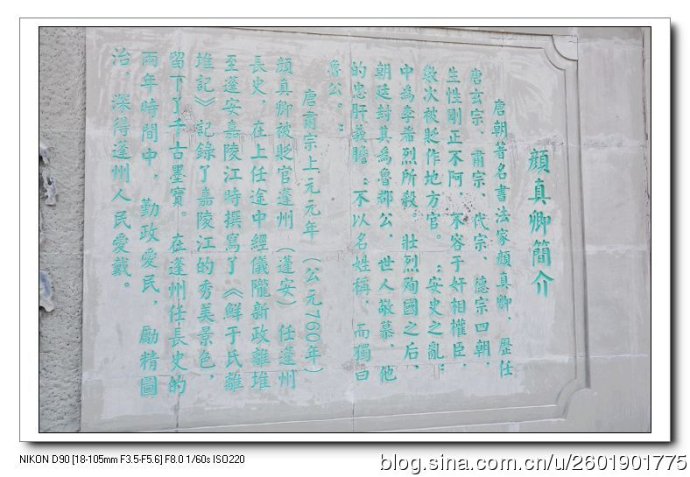 顔真卿簡介
唐朝著名書法家顔真卿，歷任
唐玄宗、肅宗、代宗、德宗四朝，
生性剛正不阿，不容于奸相權臣，
幾次被貶作地方官。：安史之亂：
中為李希烈所殺。壯烈殉國之后，
朝廷封其為魯郡公，世人敬慕，他
的忠肝義膽：不以名姓稱，而獨曰
魯公。：
唐肅宗上元元年（公元760年）
顔真卿被貶官蓬州（蓬安）任蓬州
長史，在上任途中經儀隴新政離堆
至蓬安嘉陵江時撰寫了《鮮于氏離
堆記》記錄了嘉陵江的秀美景色，
留下了千古墨寶。在蓬州任長史的
兩年時間中，勤政愛民，勵精圖
治，深得蓬州人民愛戴。
NIKON D90 [18-105mm F3.5-F5.6] F8.0 1/60s ISO220
blog.sina.com.cn/u/2601901775